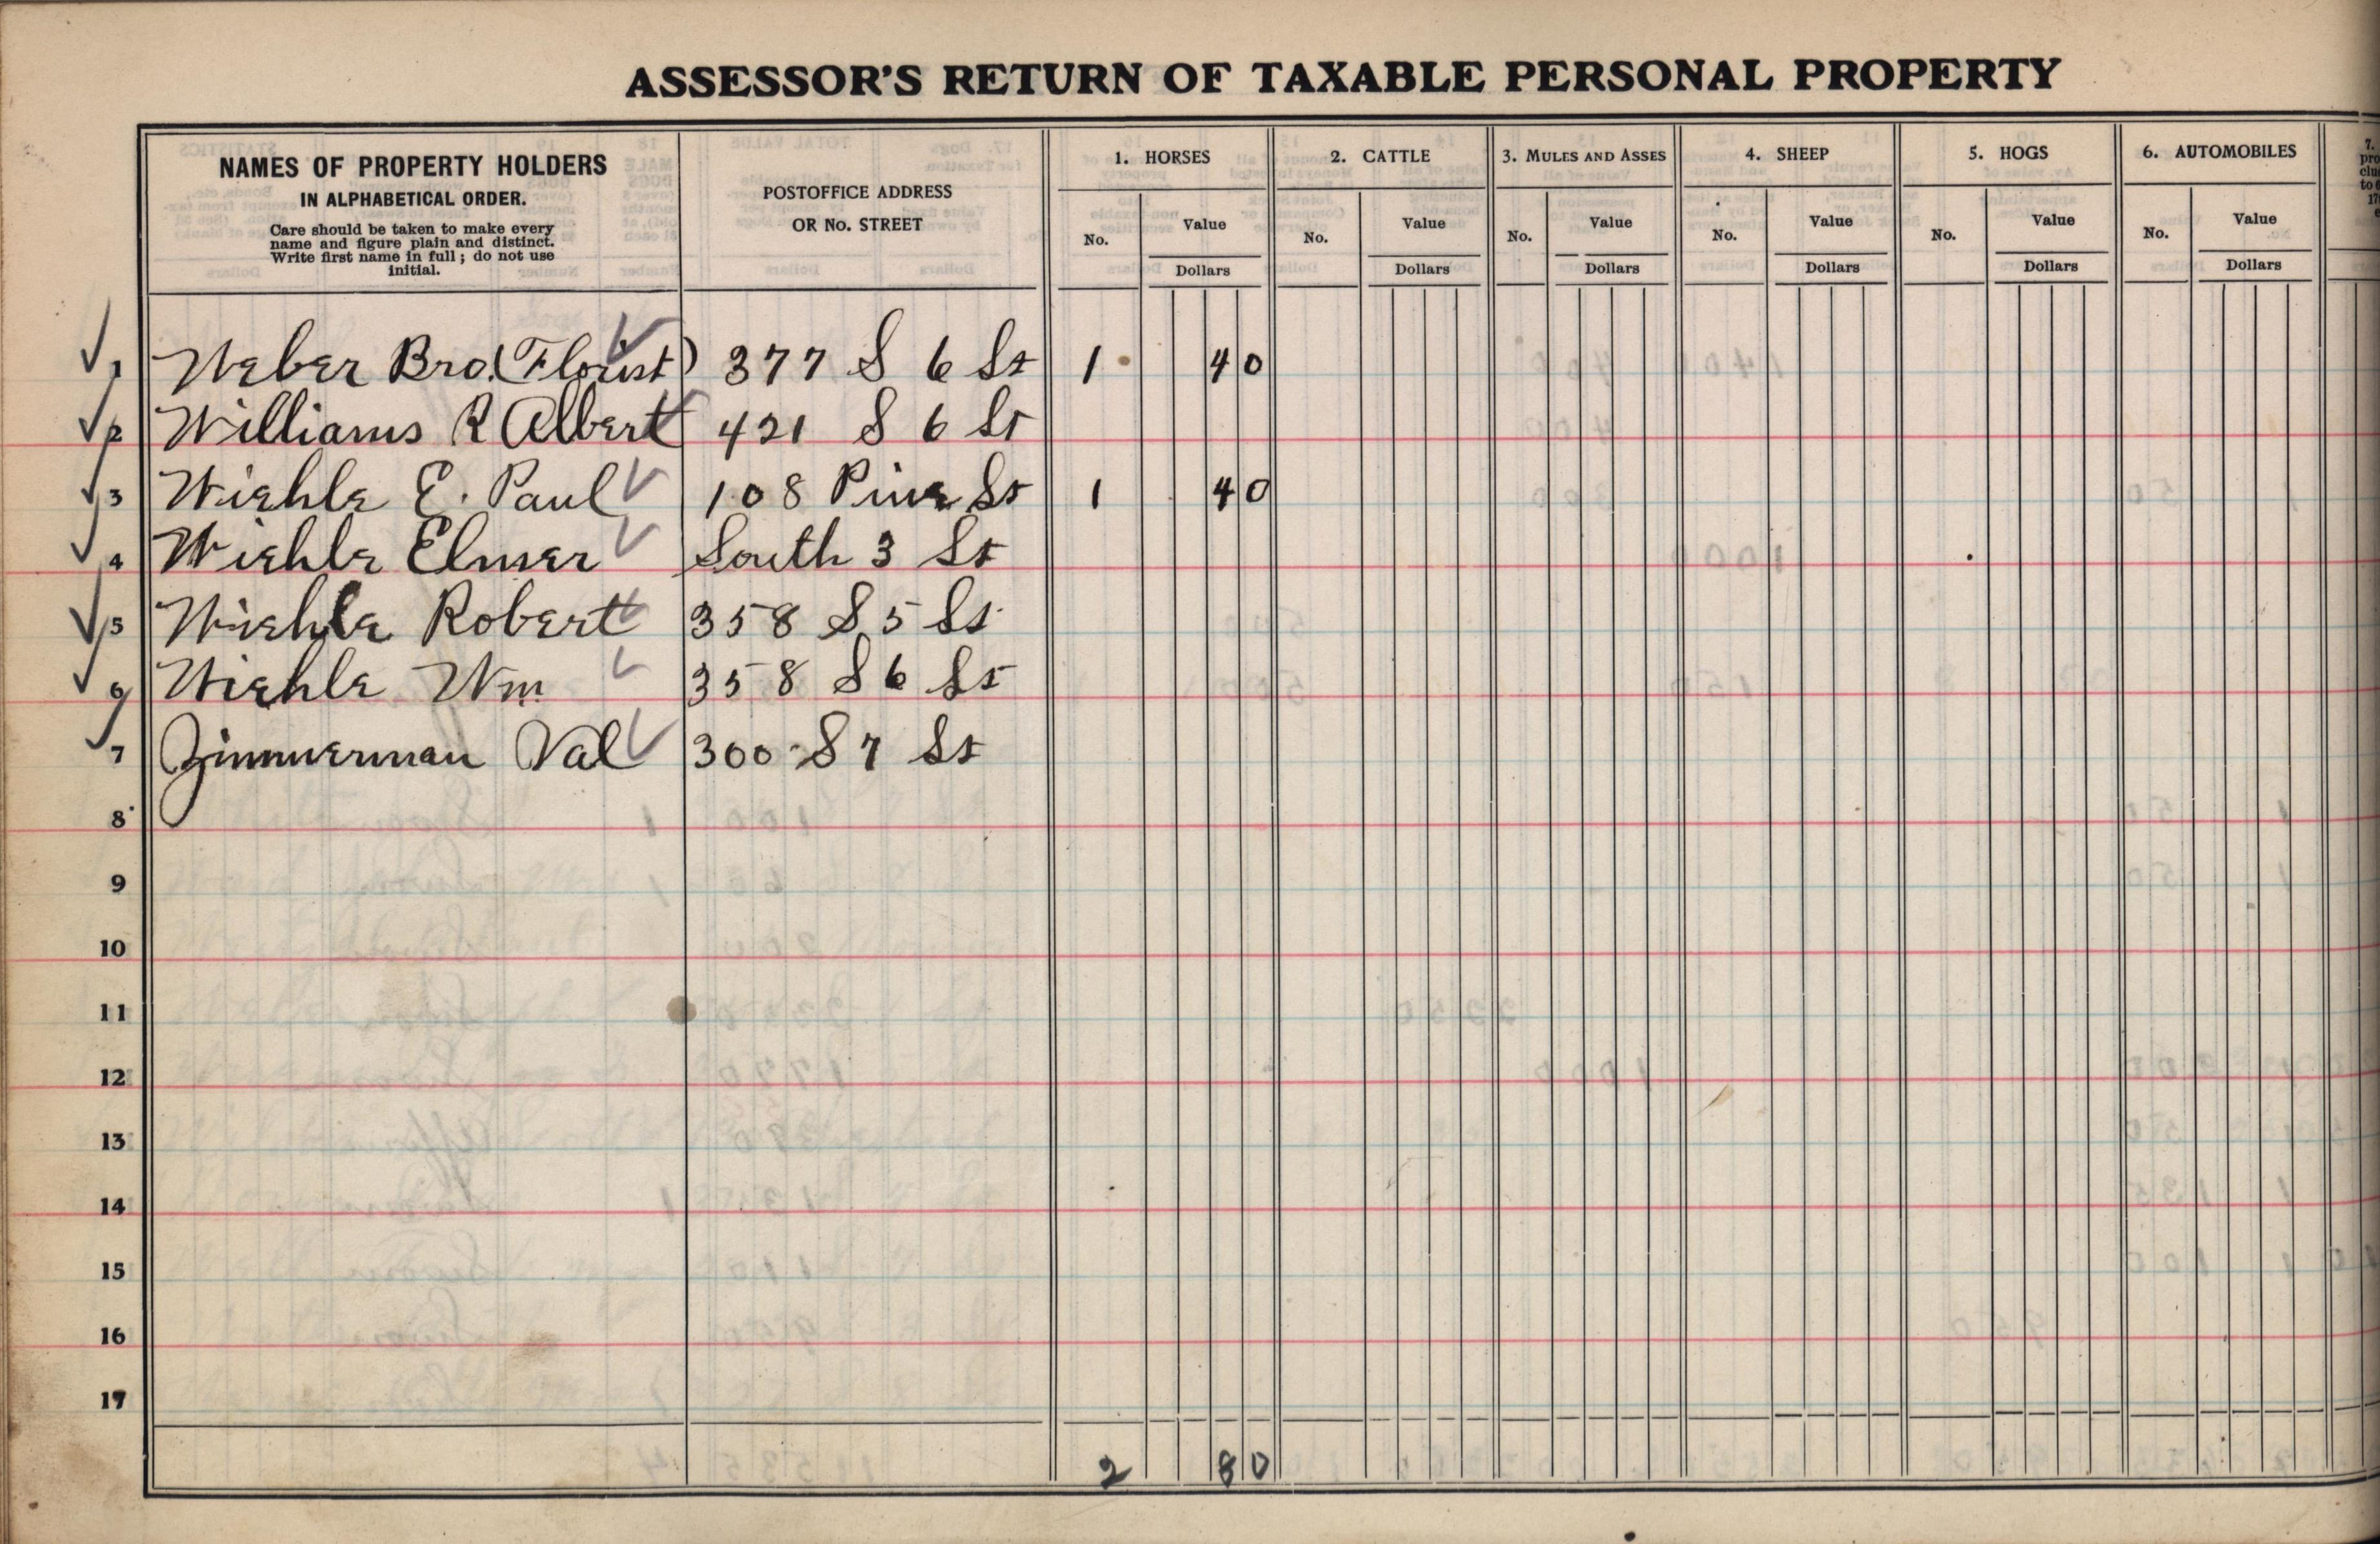 ASSESSOR'S RETURN OF TAXABLE PERSONAL PROPERTY
NAMES OF PROPERTY HOLDERS
IN ALPHABETICAL ORDER.
Care should be taken to make every
name and figure plain and distinct.
Write first name in full; do not use
initial.
POSTOFFICE ADDRESS
OR No. STREET
1. HORSES
No.
Value
Dollars
2. CATTLE
No.
Value
Dollars
3. MULES AND ASSES
No.
Value
Dollars
4. SHEEP
No.
Value
Dollars
5. HOGS
No.
Value
Dollars
6. AUTOMOBILES
No.
Value
Dollars
7.
1 Weber Bro. (Florist) 377 S 6 St 1 40
2 Williams R Albert 421 S 6 St
3 Wiehle E. Paul 108 Pine St 1 40
4 Wiehle Elmer South 3 St
5 Wiehle Robert 358 S 5 St
6 Wiehle Wm 358 S 6 St
7 Zimmerman Val 300 S 7 St
8
9
10
11
12
13
14
15
16
17
2 80